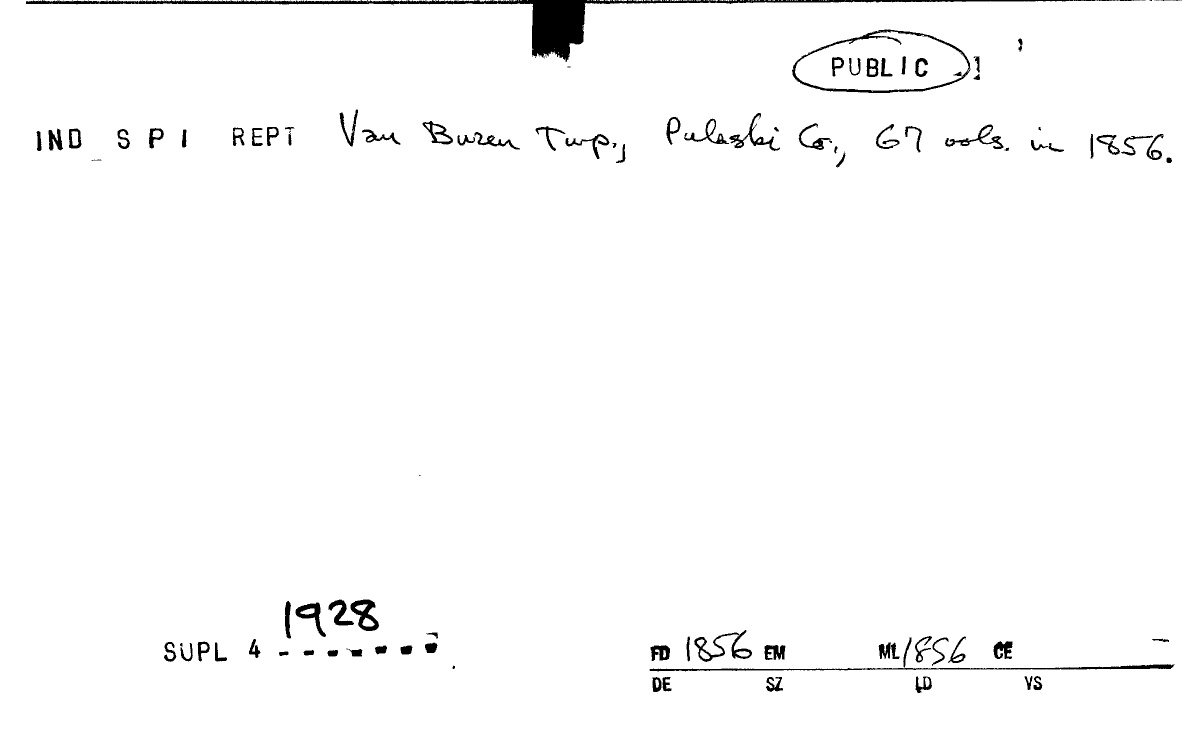 PUBLIC
IND S P I REPT Van Buren Twp., Pulaski Co., 67 vols. in 1856.
1928
SUPL 4 - - - - - - -
FD 1856 EM ML 1856 CE -
DE SZ LD VS